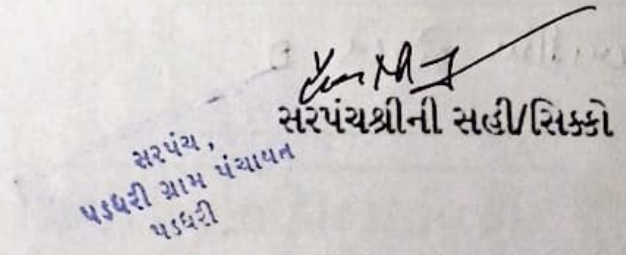 સરપંચશ્રીની સહી/સિક્કો
સરપંચ,
પડધરી ગ્રામ પંચાયત
પડધરી